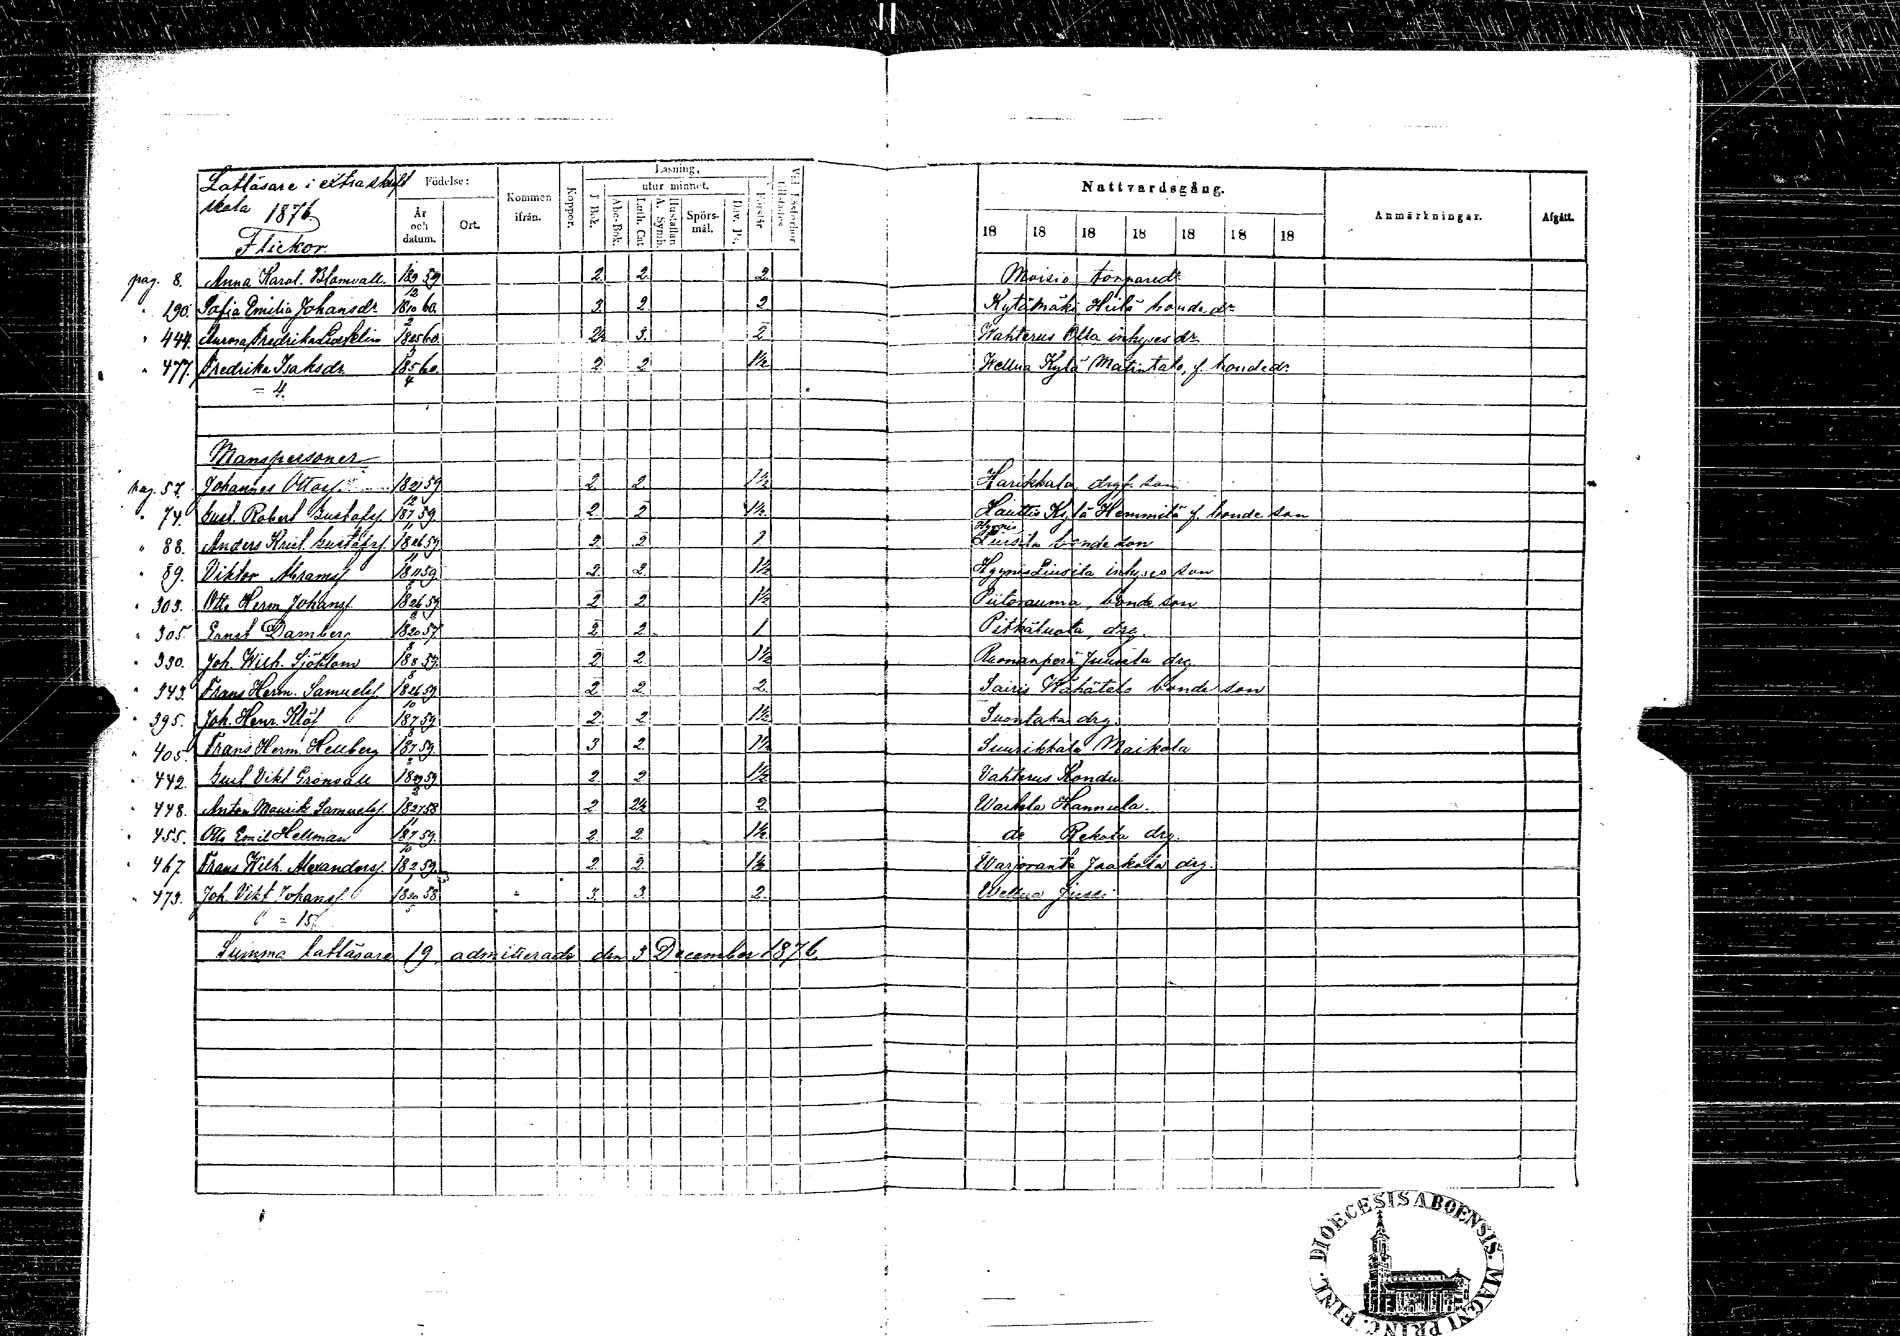 Lattläsare i extra skrift
skola 1876
Flickor.
Födelse:
År och datum.
Ort.
Kommen ifrån.
Koppor.
Läsning,
utur minnet.
I Bok.
Abc-Bok.
Luth. Cat.
Hustaflan A. Symb.
Spörs-mål.
Dav. Ps.
Förstår
Nattvardsgång.
18 18 18 18 18 18 18
Anmärkningar.
Afgått.
pag. 8. Anna Karol. Blomvall. 18 9/12 59 2 2 2 Moisio torpared:r
" 190. Sofia Emilia Johansdr 18 10/2 60. 3. 2 2 Kytämäki Heilä bonde dr
" 444. Aurora Fredrika 60. 2½ 3. 2 Wahterus Olla inhyses dr
" 477. Fredrika Isaksdr 18 5/4 60. 2 2 1½ Wellua Kylä Matintalo, f. bondedr
= 4.
Manspersoner
pag. 57. Johannes Ottosf. 18 21/12 59 2. 2. 1½ Harikkala drgs. son
" 74. Gust. Robert Gustafsf. 18 7/11 59. 2 2 1½ Hauttis Kylä Hemmilä f. bonde son
" 88. Anders Krist. Gustafsf. 18 26/11 59. 2. 2 1 Hyynis Liusila bonde son
" 89. Viktor Abramsf. 59. 2. 2. 1½ Hyynis Liusila inhyses son
" 303. Otto Herm. Johansf. 18 26 59 2 2 1½ Piitorauma, bonde son
" 305. Ernst Damberg 18 20 57. 2 2. 1 Pitkäluota, drg.
" 330. Joh. Wilh. Sjöblom 18 8 59. 2 2. 1½ Ruonanperä Juusela drg.
" 343. Frans Herm. Samuelsf. 18 26/10 59. 2 2. 2. Sairis Wähätalo bonde son
" 395. Joh. Henr. Klöf 18 7 59. 2. 2 1½ Suontaka drg.
" 405. Frans Herm. Hellberg 18 7 59. 3 2. 1½ Suurikkala Maikola
" 442. Gust. Vikt. Grönvall 59. 2. 2 1½ Vahterus Kondu
" 448. Anton Maurits Samuelsf. 18 27/11 58 2 2½ 2. Warhela Hannula.
" 455. Otto Emil Hellman 18 7/10 59. 2. 2. 1½ do Rekola drg.
" 467 Frans Wilh. Alexandersf. 18 2 59. 2. 2. 1½ Warjoranta Jaakola drg.
" 473. Joh. Vikt. Johansf. 18 20/5 58. 3. 3. 2. Wellua Jussi
= 15.
Summa lattläsare 19 admitterade den 3 December 1876.
DIOECESIS ABOENSIS. MAGNI PRINC. FINL.